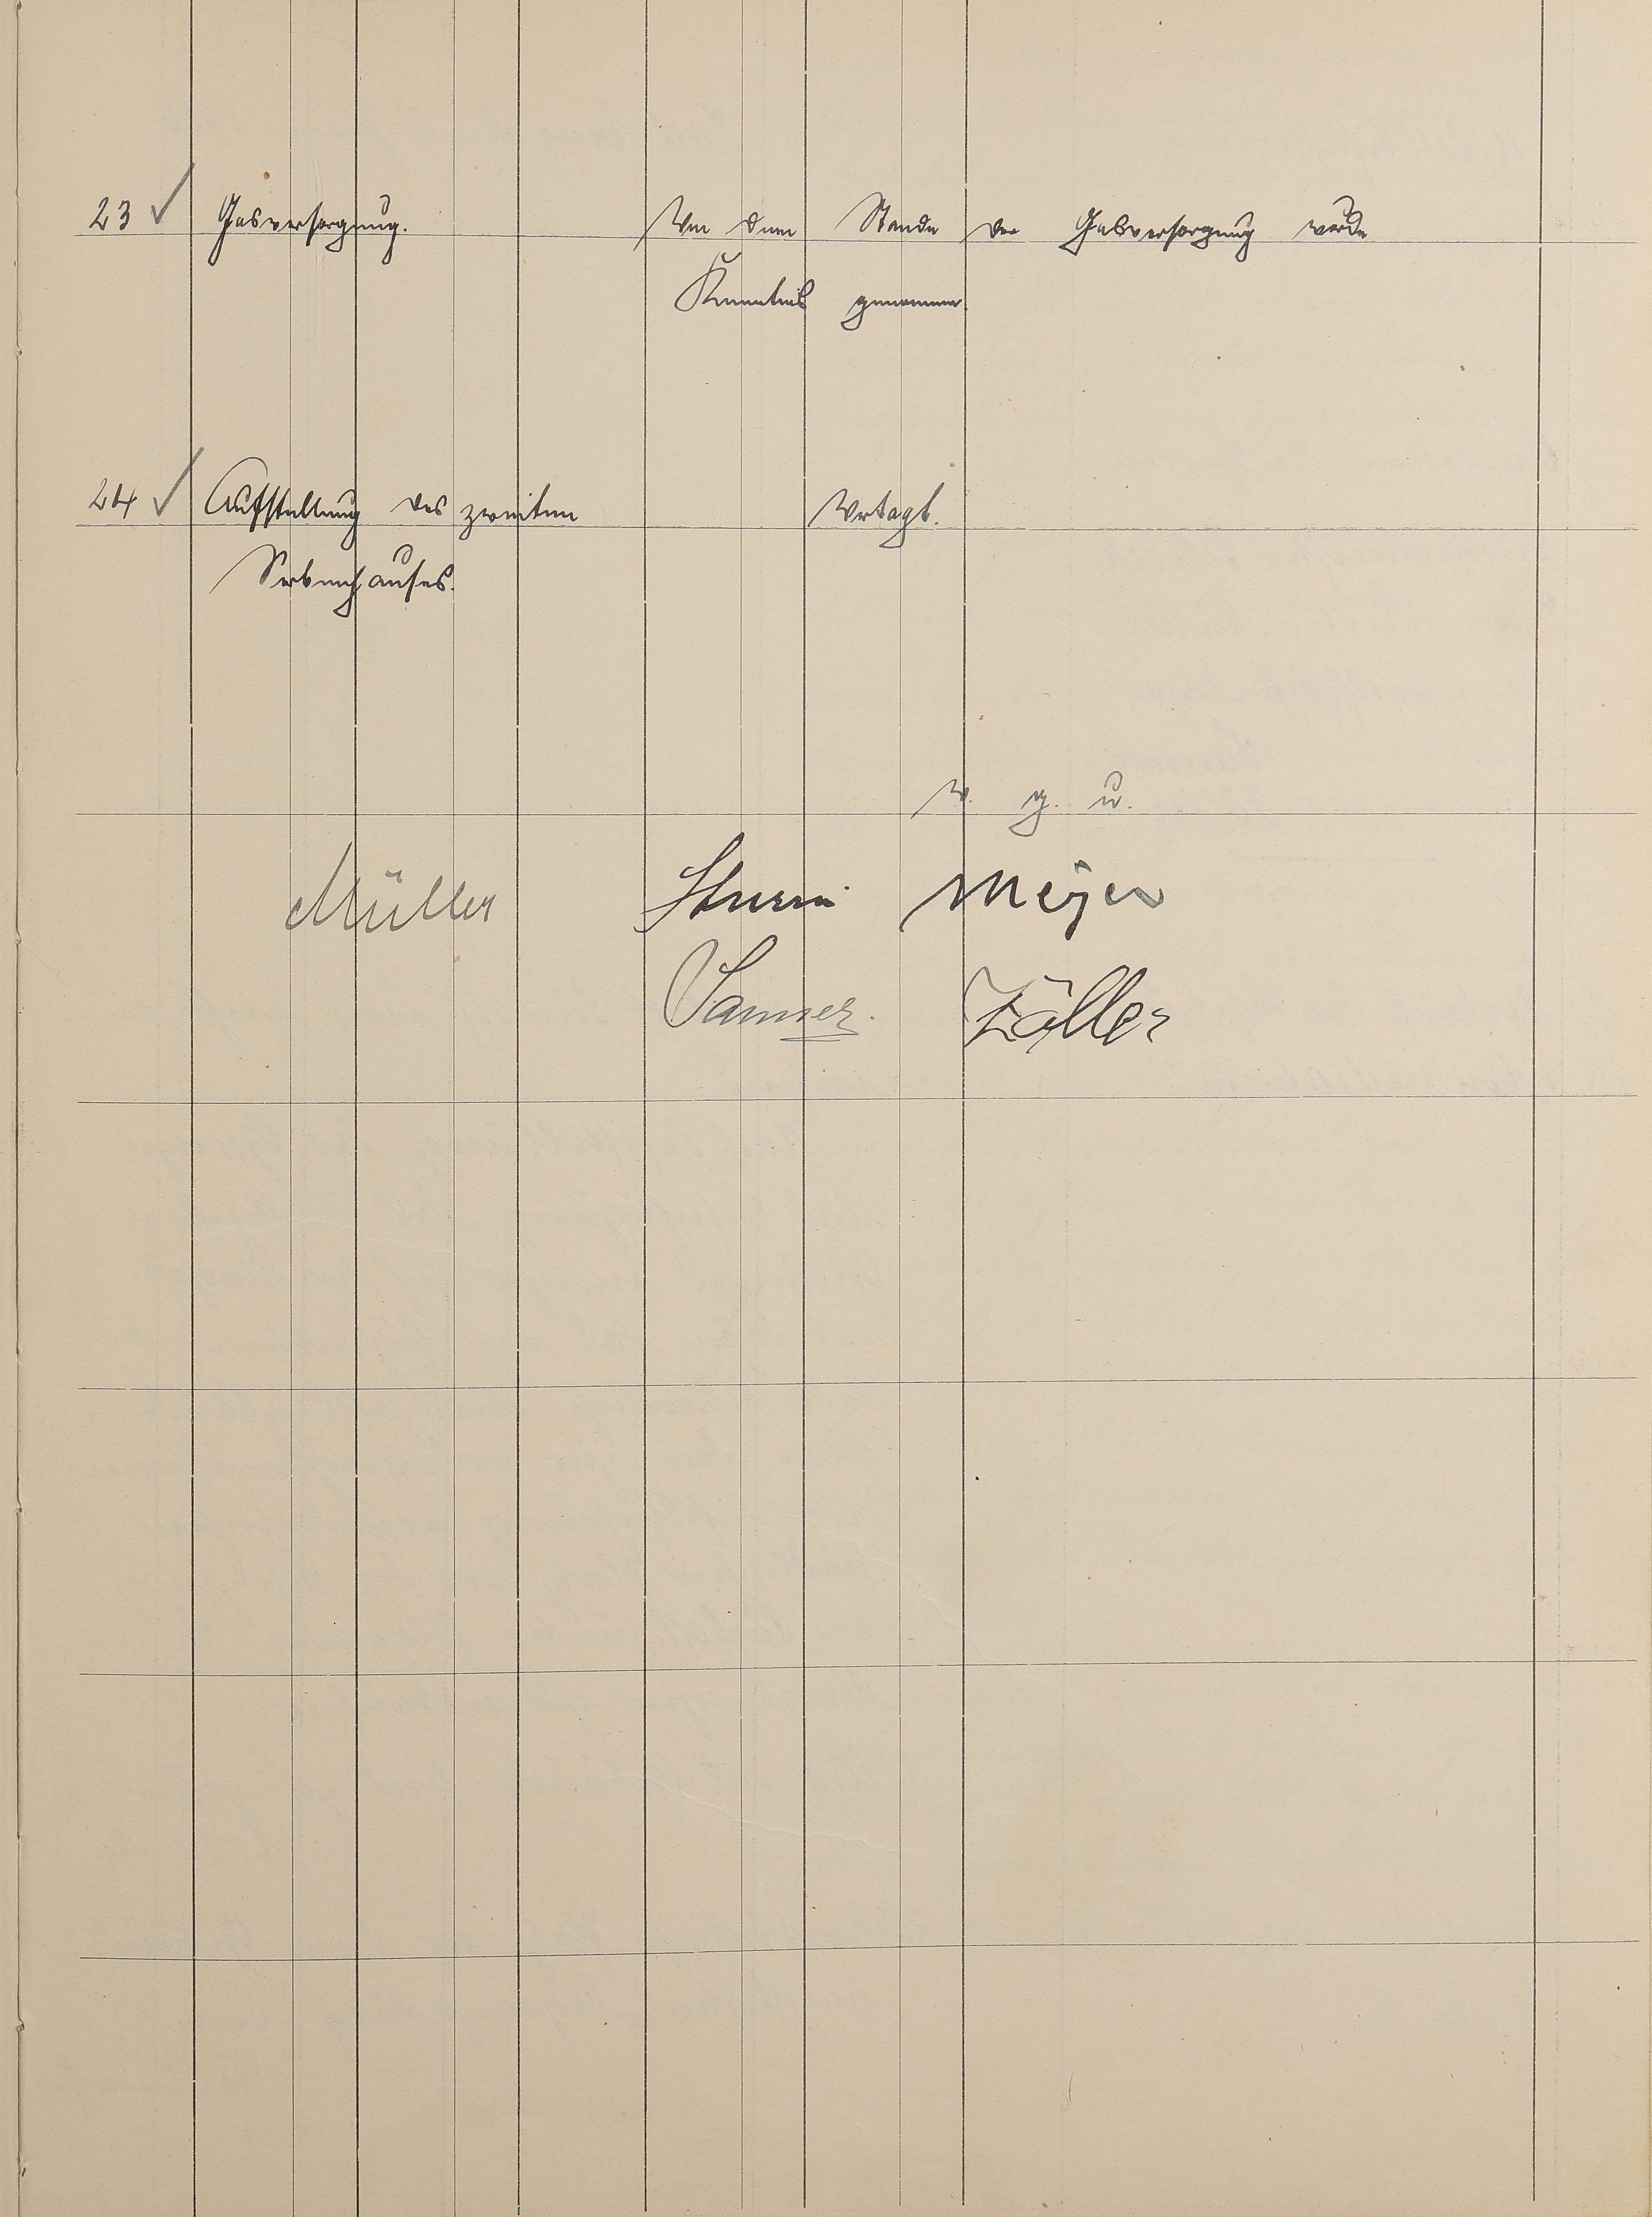 23 ✓ Gasversorgung. Von dem Stande der Gasversorgung wurde
Kenntnis genommen.
24 ✓ Aufstellung des zweiten Vertagt.
v. g. u.
Müller Sturm Meyer
Sanner. Zöller